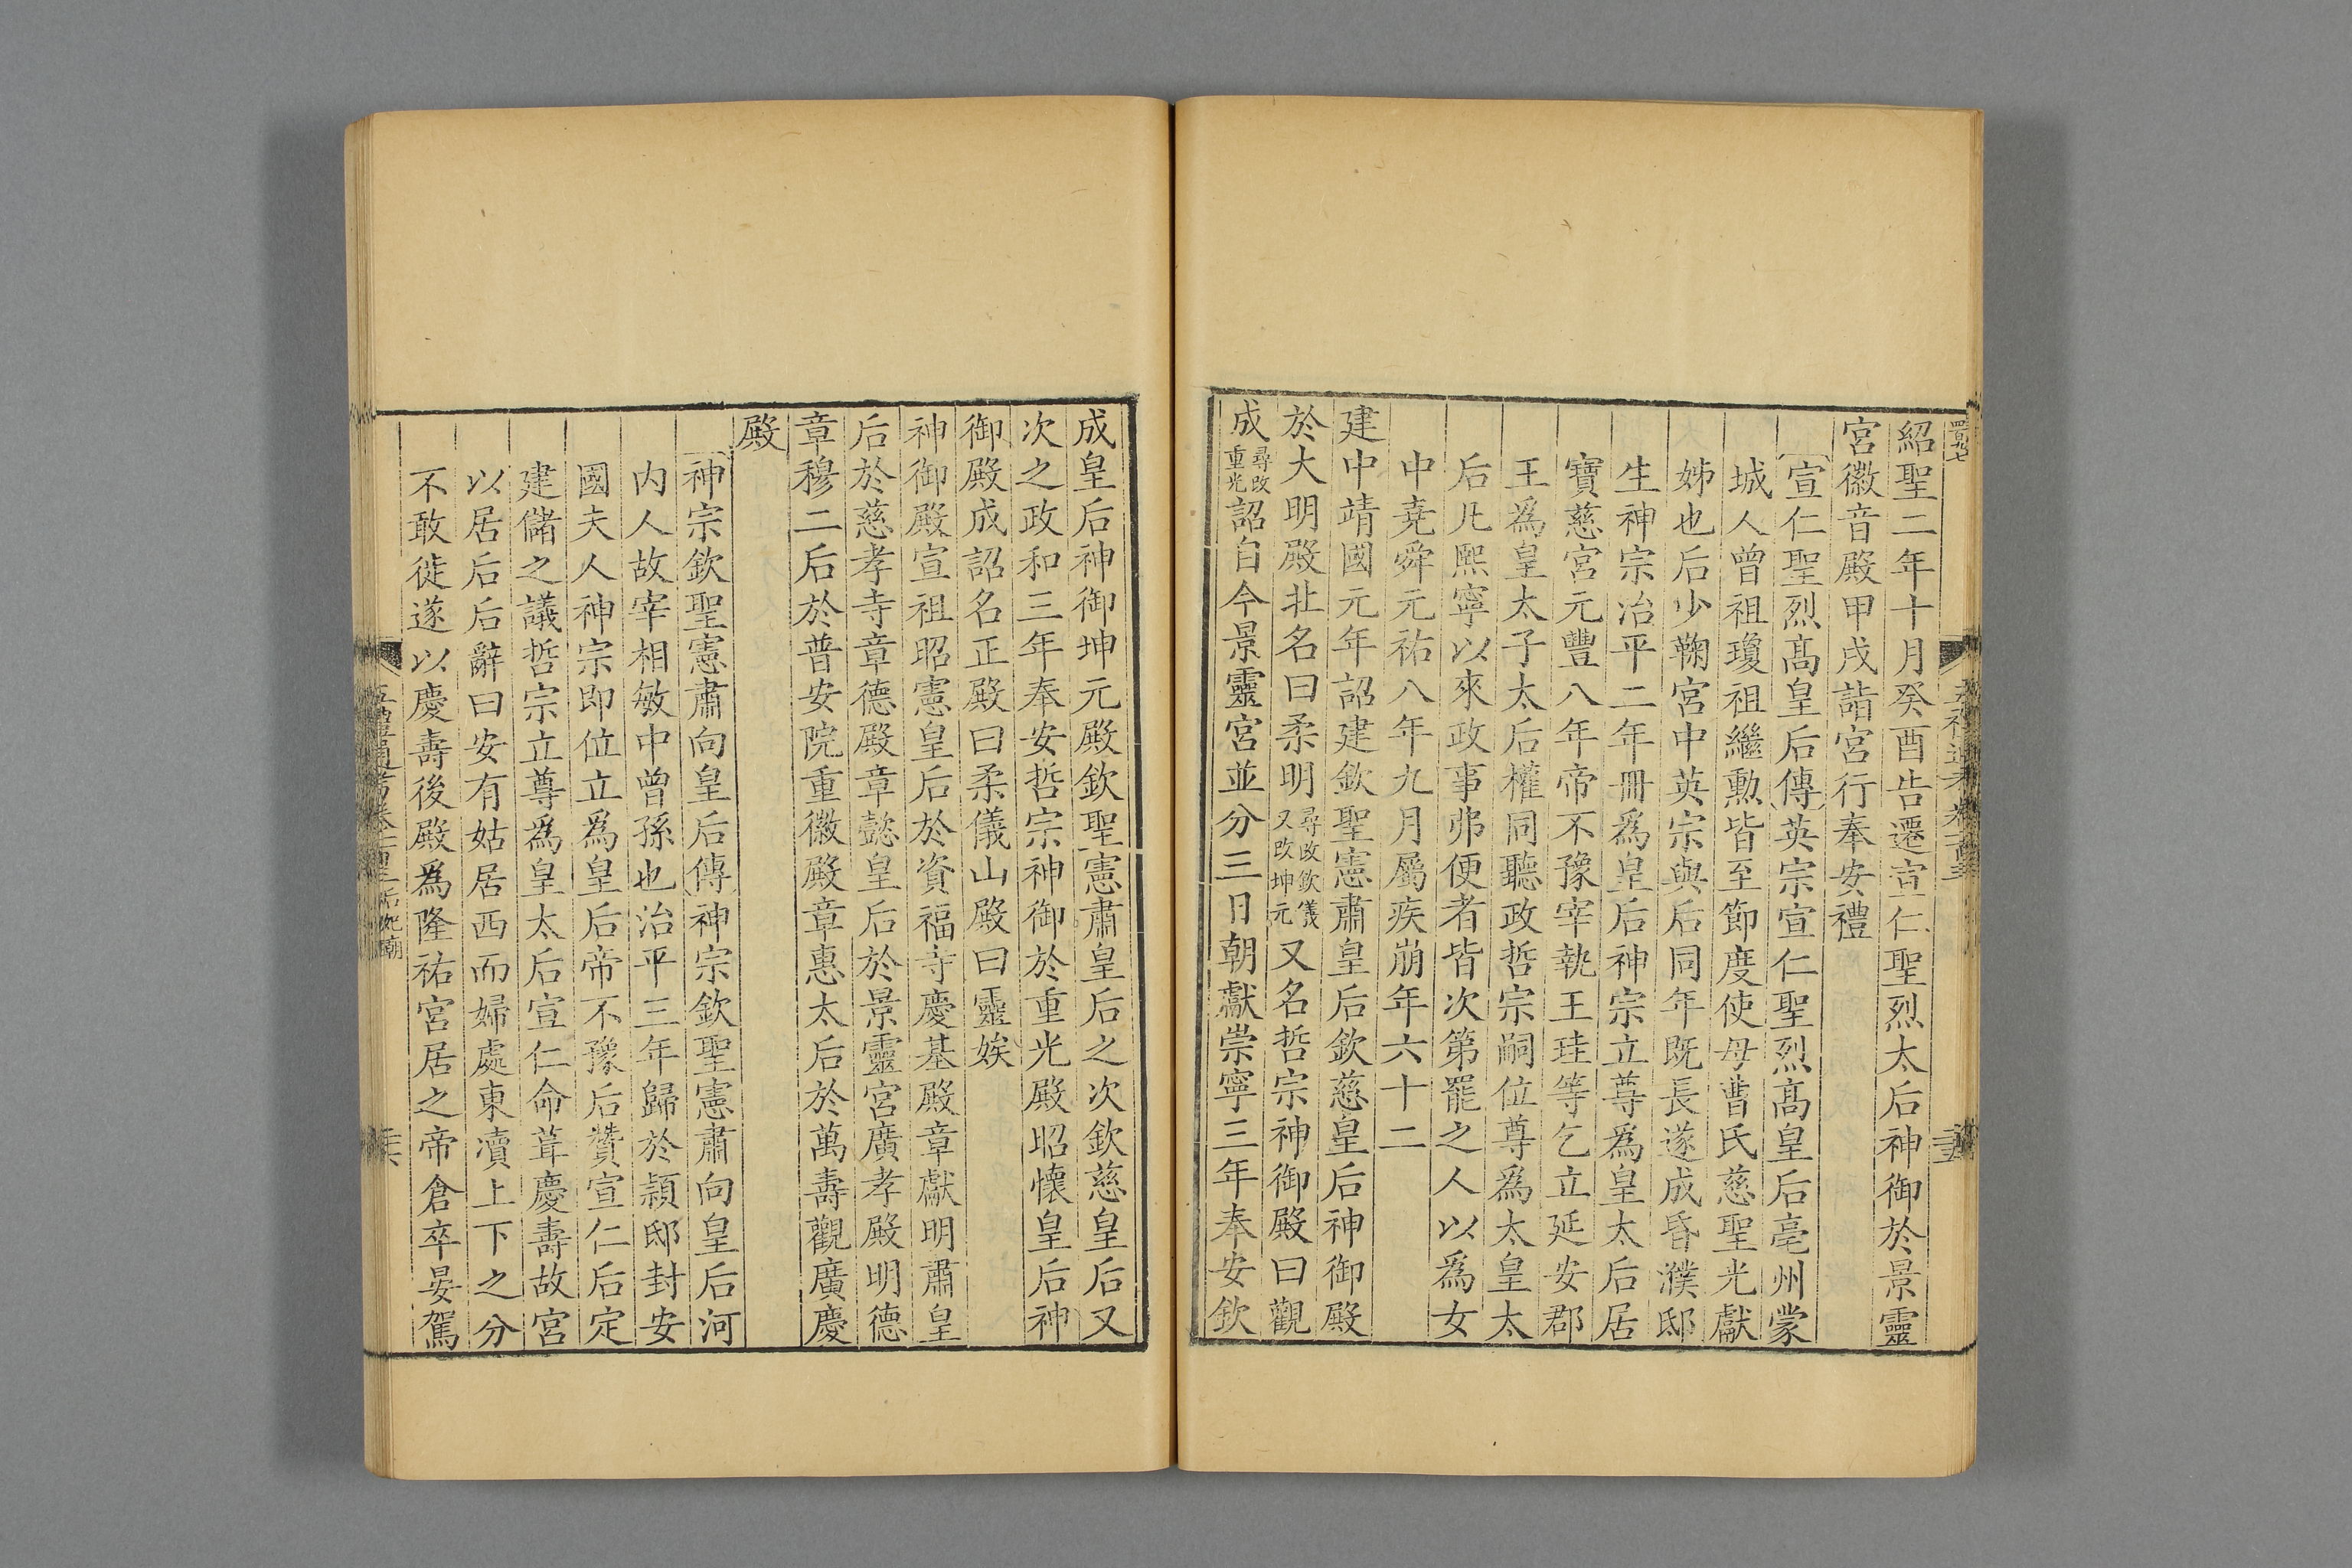 紹聖二年十月癸酉告遷宣仁聖烈太后神御於景靈
宮徽音殿甲戌詣宮行奉安禮
宣仁聖烈髙皇后傳英宗宣仁聖烈髙皇后亳州蒙
城人曾祖瓊祖繼勳皆至節度使母曹氏慈聖光獻
姊也后少鞠宮中英宗與后同年既長遂成昏濮邸
生神宗治平二年冊爲皇后神宗立尊爲皇太后居
寶慈宮元豐八年帝不豫宰執王珪等乞立延安郡
王爲皇太子太后權同聽政哲宗嗣位尊爲太皇太
后凡熙寧以來政事弗便者皆次第罷之人以爲女
中堯舜元祐八年九月屬疾崩年六十二
建中靖國元年詔建欽聖憲肅皇后欽慈皇后神御殿
於大明殿北名曰柔明尋改欽儀又改坤元又名哲宗神御殿曰觀
成尋改重光詔自今景靈宮並分三日朝獻崇寧三年奉安欽
成皇后神御坤元殿欽聖憲肅皇后之次欽慈皇后又
次之政和三年奉安哲宗神御於重光殿昭懷皇后神
御殿成詔名正殿曰柔儀山殿曰靈娭
神御殿宣祖昭憲皇后於資福寺慶基殿章獻明肅皇
后於慈孝寺章德殿章懿皇后於景靈宮廣孝殿明德
章穆二后於普安院重徽殿章惠太后於萬壽觀廣慶
殿
神宗欽聖憲肅向皇后傳神宗欽聖憲肅向皇后河
内人故宰相敏中曾孫也治平三年歸於潁邸封安
國夫人神宗即位立爲皇后帝不豫后贊宣仁后定
建儲之議哲宗立尊爲皇太后宣仁命葺慶壽故宮
以居后后辭曰安有姑居西而婦處東瀆上下之分
不敢徙遂以慶壽後殿爲隆祐宮居之帝倉卒晏駕